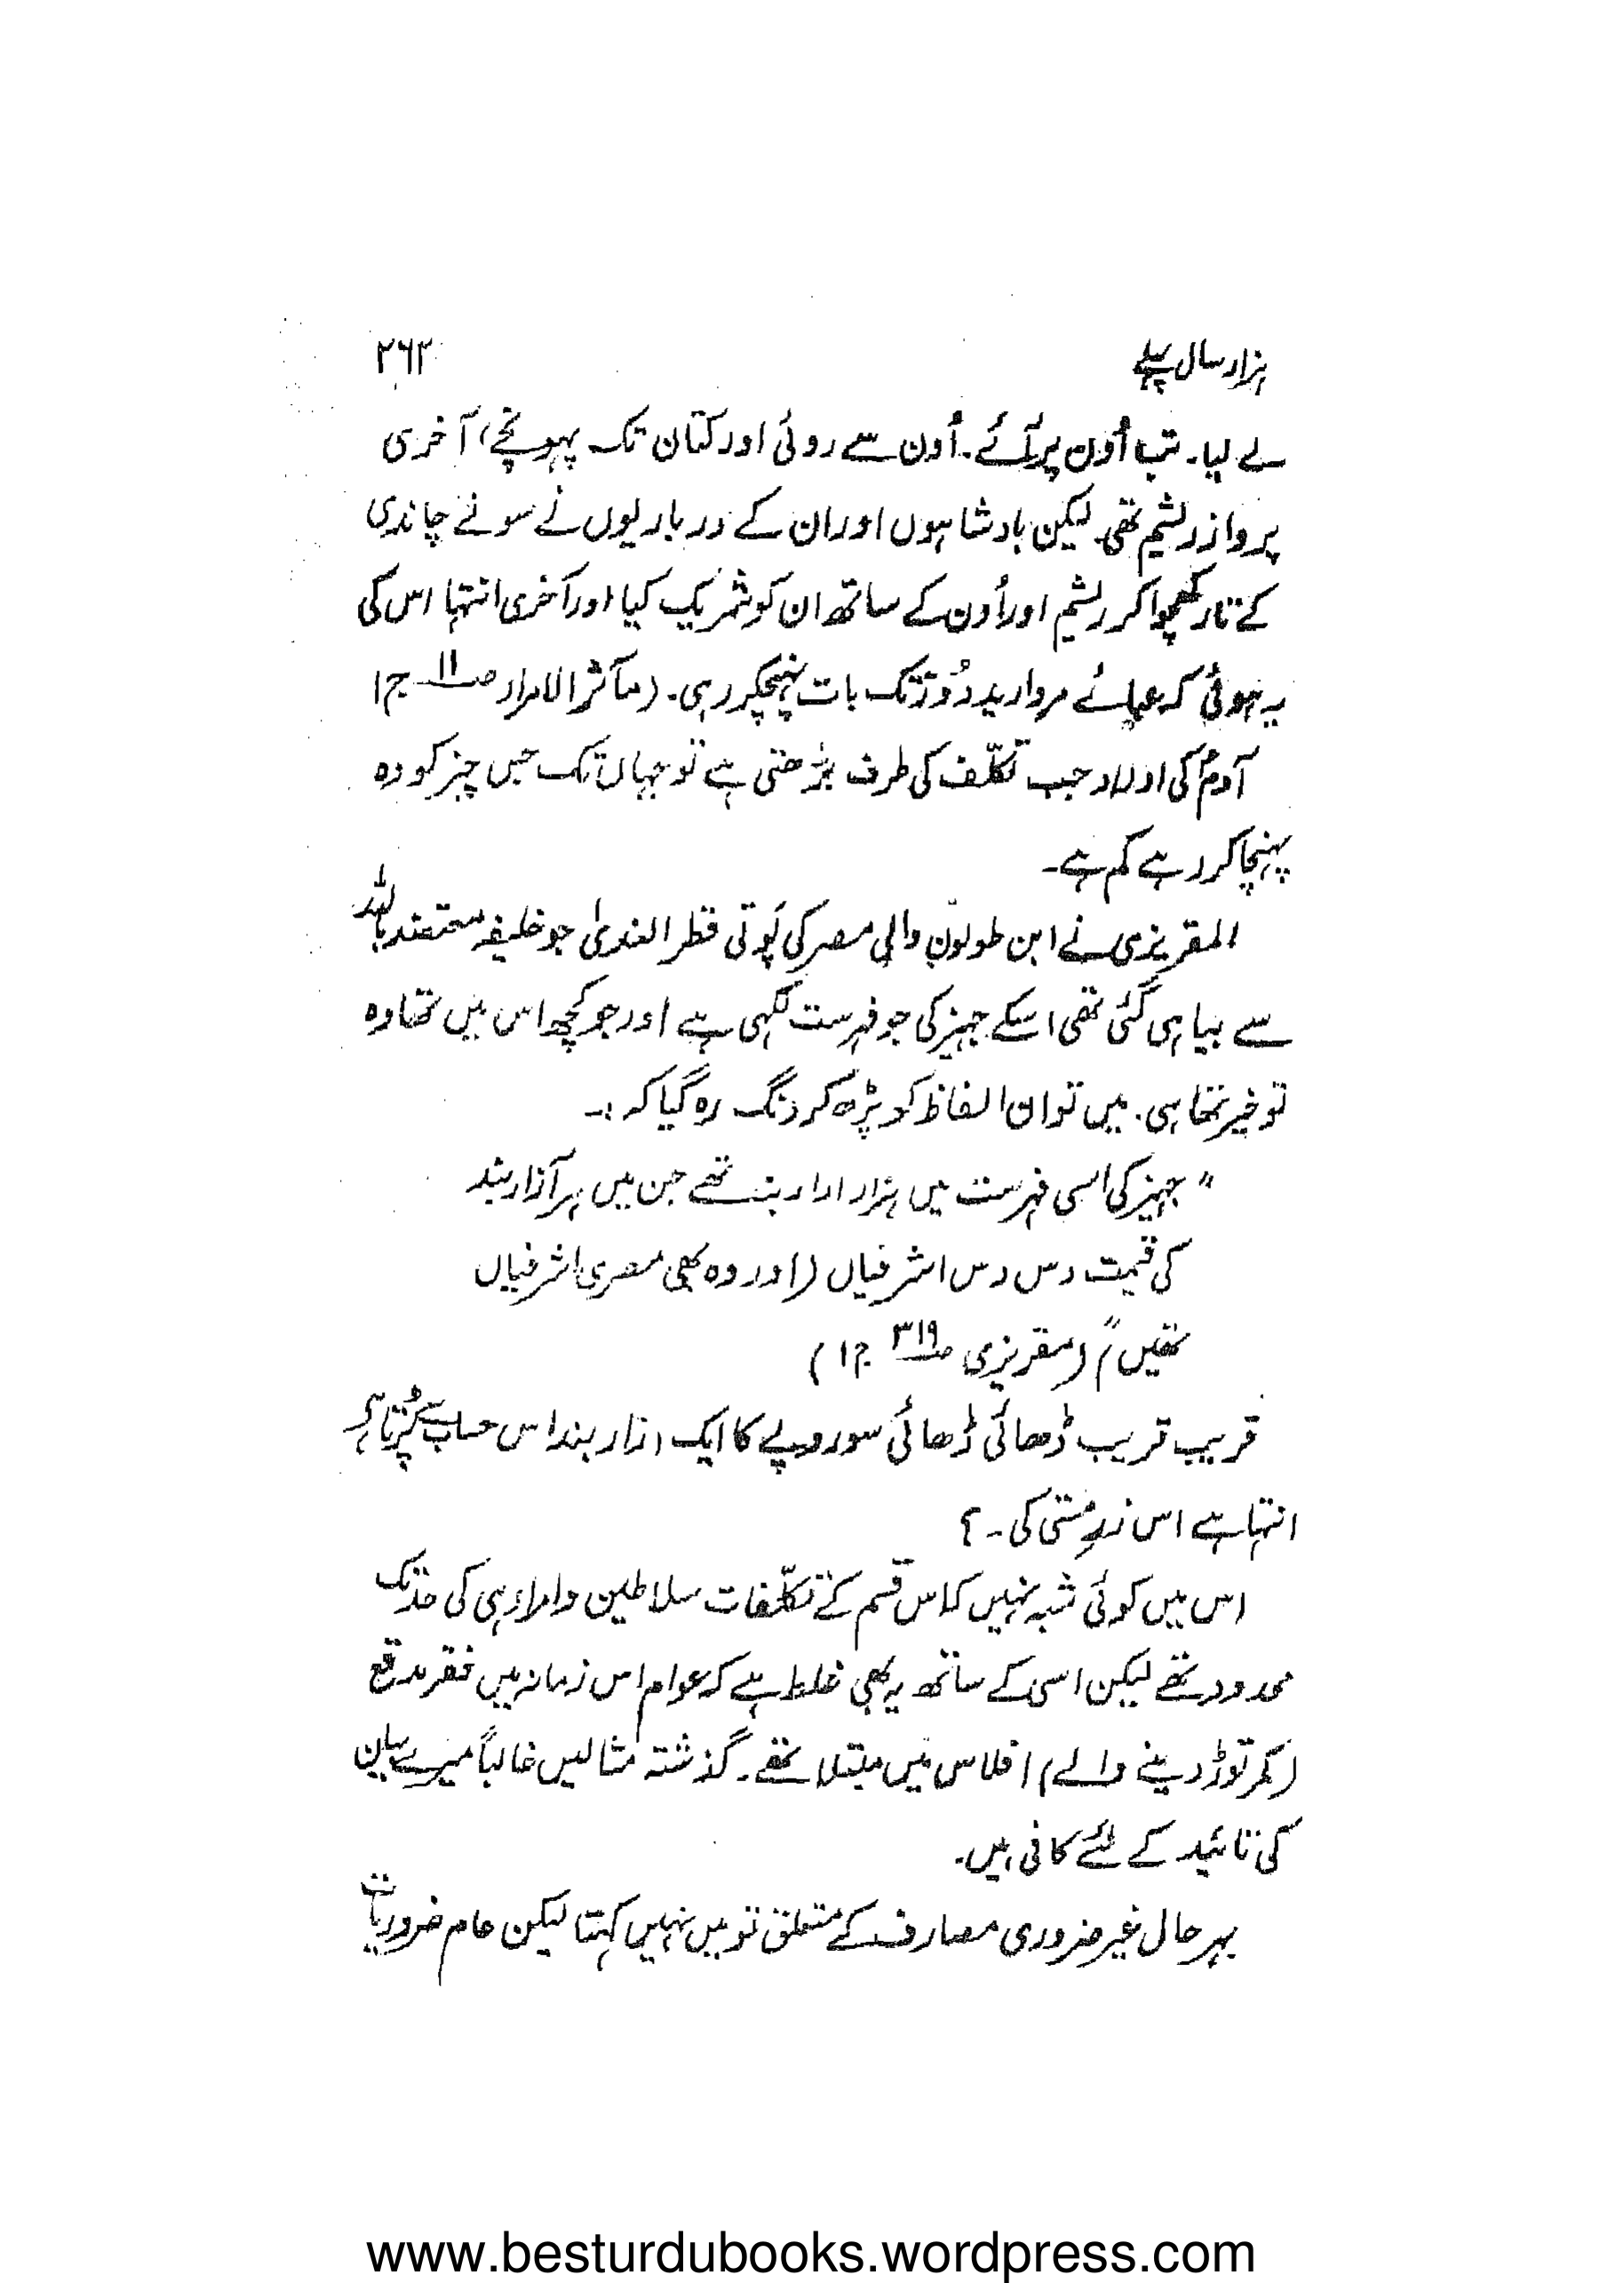 ہزار سال پہلے ۲۶۲
لے لیا۔ تب اُون پر آئے۔ اُون سے روئی اور کتان تک پہونچے، آخری
پرواز ریشم تھی لیکن بادشاہوں اور ان کے درباریوں نے سونے چاندی
کے تار کھچوا کر ریشم اور اُون کے ساتھ ان کو شریک کیا اور آخری انتہا اس کی
یہ ہوئی کہ عبائے مروارید دُوز تک بات پہنچکر رہی۔ (مآثر الامراء صـ۱۱ ج۱
آدم کی اولاد جب تکلّف کی طرف بڑھتی ہے تو جہاں تک جس چیز کو وہ
پہنچا کر رہے کم ہے۔
المقریزی نے ابن طولون والی مصر کی پوتی قطر الندیٰ جو خلیفہ معتضد باللہ
سے بیاہی گئی تھی اسکے جہیز کی جو فہرست لکھی ہے اور جو کچھ اس میں تھا وہ
تو خیر تھا ہی۔ میں تو ان الفاظ کو پڑھ کر دنگ رہ گیا کہ :۔
"جہیز کی اسی فہرست میں ہزار ازار بند تھے جن میں ہر آزار بند
کی قیمت دس دس اشرفیاں (اور وہ بھی مصری اشرفیاں
تھیں" (مقریزی صـ۳۱۹ ج۱)
قریب قریب ڈھائی ڈھائی سو روپے کا ایک ازار بند اس حساب سے پڑتا ہے
انتہا ہے اس زر مستی کی۔ ؟
اس میں کوئی شبہ نہیں کہ اس قسم کے تکلّفات سلاطین و امراء ہی کی حد تک
محدود تھے لیکن اسی کے ساتھ یہ بھی غلط ہے کہ عوام اس زمانہ میں فقر مدقع
(کمر توڑ دینے والے) افلاس میں مبتلا تھے۔ گذشتہ مثالیں غالباً میرے بیان
کی تائید کے لئے کافی ہیں۔
بہر حال غیر ضروری مصارف کے متعلق تو میں نہیں کہتا لیکن عام ضروریات
www.besturdubooks.wordpress.com